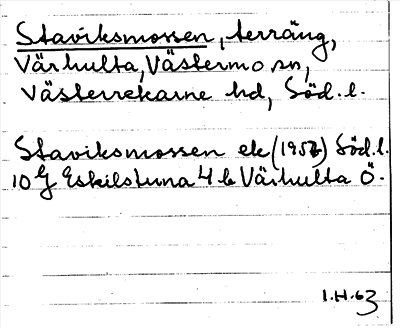 Staviksmossen, terräng,
Värhulta, Västermo sn,
Västerrekarne hd, Söd. l.
Staviksmossen ek (1957) Söd. l.
10 G Eskilstuna 4 b Värhulta Ö.
I.H. 63